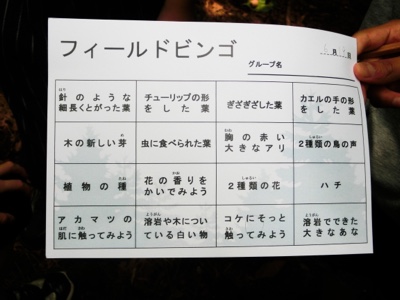 フィールドビンゴ
月 日
グループ名
針のような
細長くとがった葉
チューリップの形
をした葉
ぎざぎざした葉
カエルの手の形
をした葉
木の新しい芽
虫に食べられた葉
胸の赤い
大きなアリ
2種類の鳥の声
植物の種
花の香りを
かいでみよう
2種類の花
ハチ
アカマツの
肌に触ってみよう
溶岩や木につい
ている白い物
コケにそっと
触ってみよう
溶岩でできた
大きなあな